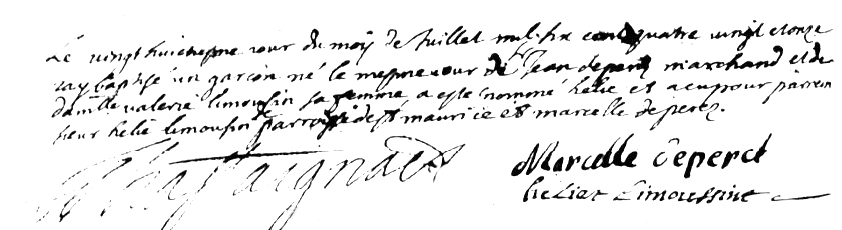 Le vingt huictiesme iour du mois de Juillet mil six cent quatre vingt et onze
iay baptisé un garcon né le mesme iour de Sr Jean deperet marchand et de
damlle valerie limousin sa femme, a esté nommé helie et a eu pour parrein
sieur helie limousin de parroisse de st maurice et marcelle deperet.
Marcelle deperet
heliet Limoussint